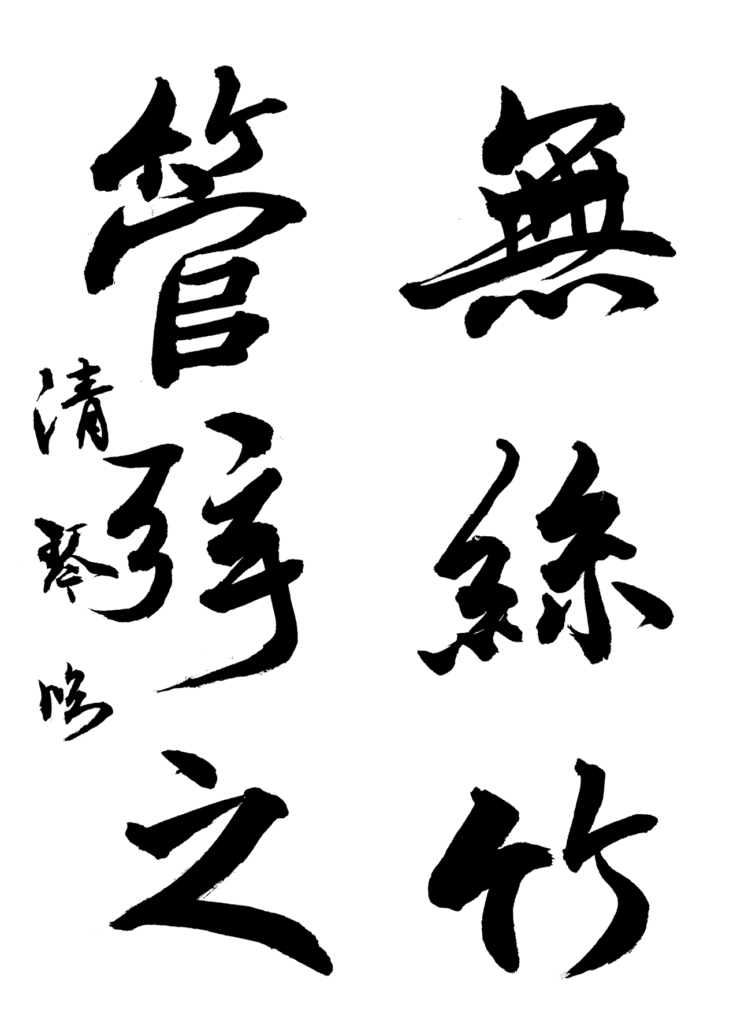 無絲竹
管弦之
清琴臨